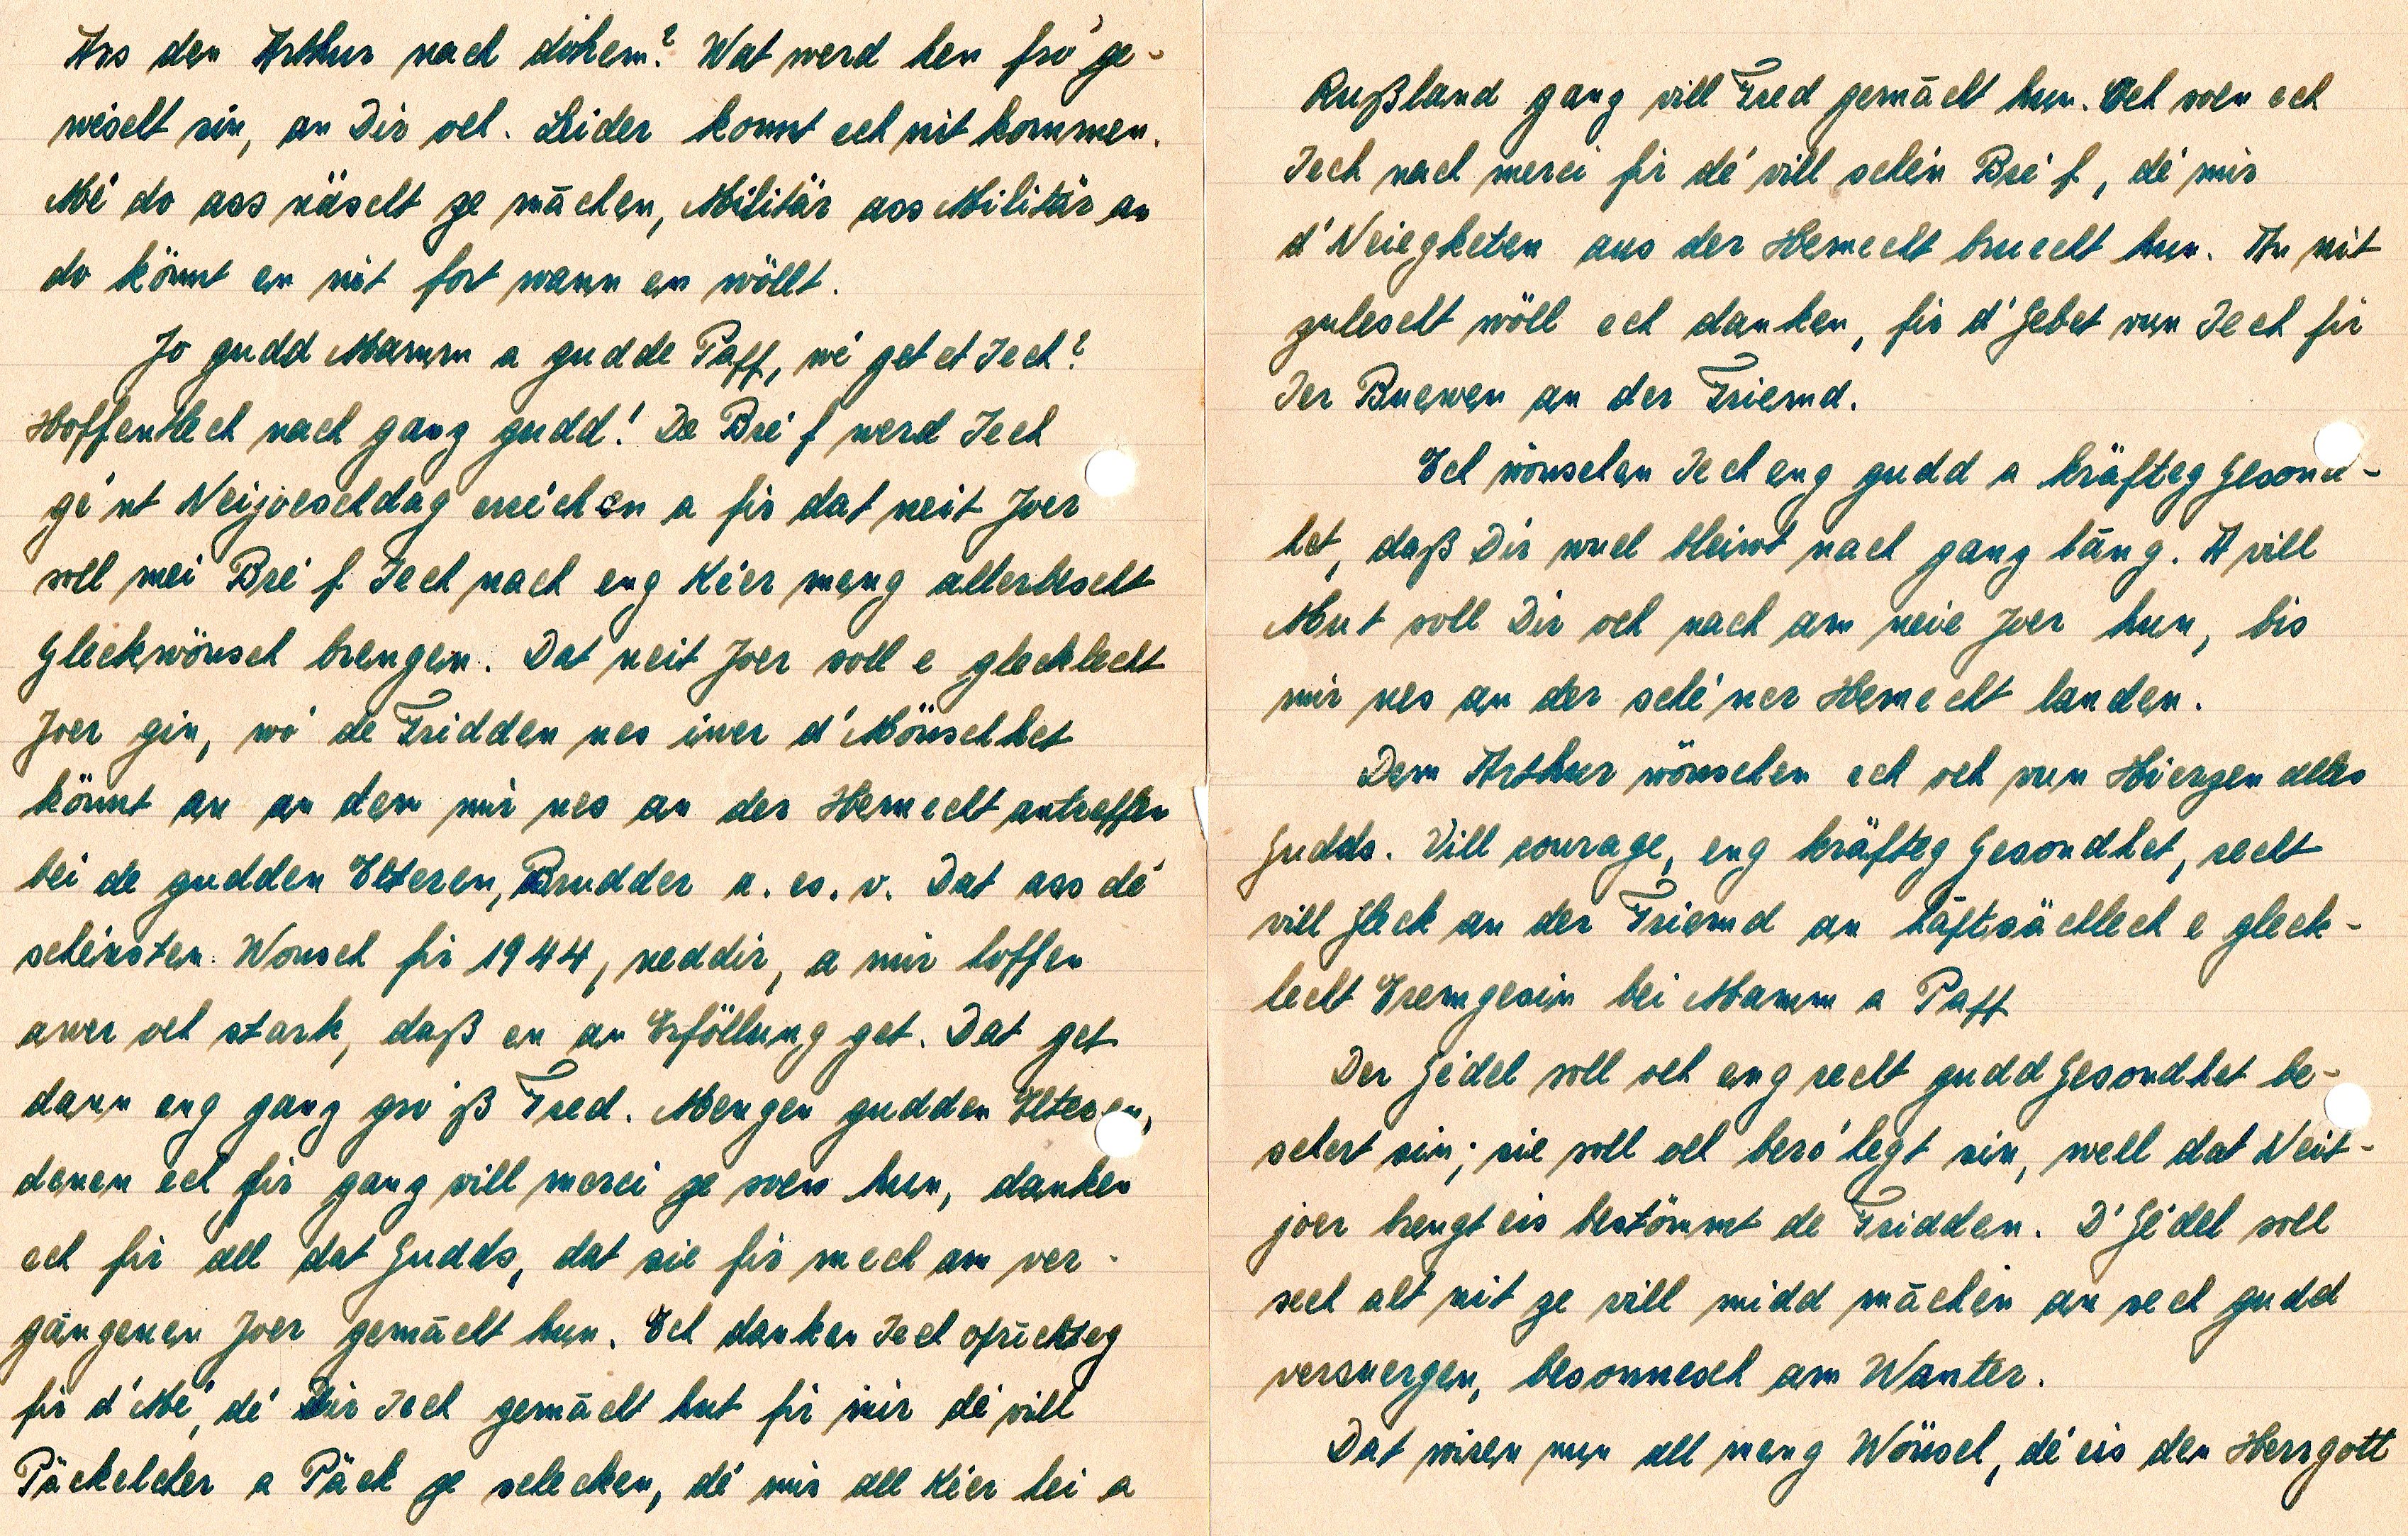 Ass den Arthur nach dohem? Wat werd hen fro' ge-
wéscht sin, an Dir och. Leider konnt ech nit kommen.
Mé do ass näscht ze māchen, Militär ass Militär an
do könnt en nit fort wann en wöllt.
Jo gudd Mamm a gudde Papp, wé get et Iech?
Hoffentlech nach ganz gudd! De Bréf werd Iech
gént Neijoeschdag erréchen a fir dat neit Joer
soll mei Bréf Iech nach eng Kéer meng allerbescht
Gleckwönsch brengen. Dat neit Joer soll e glecklecht
Joer gin, wo' de Fridden nes iwer d'Mönschhet
könnt an an dem mir nes an der Hemecht antreffen
bei de gudden Elteren, Brudder a. es. v. Dat ass dé
schéinsten Wonsch fir 1944, neddir, a mir hoffen
awer och stark, daß en an Erföllung get. Dat get
dann eng ganz gro'ß Fred. Mengen gudden Elteren,
denen ech fir ganz vill merci ze soen hun, danken
ech fir all dat Gudds, dat sie fir mech am ver-
gängenen Joer gemācht hun. Ech danken Iech oprichteg
fir d'Mé, dé Dir Iech gemācht hut fir mir dé vill
Päckelcher a Päck ze schecken, dé mir all Kéer hei a
Rußland ganz vill Fred gemācht hun. Och soen ech
Iech nach merci fir dé vill schéin Bréf, dé mir
d'Neiegketen aus der Hemecht bruecht hun. An nit
zulescht wöll ech danken, fir d'Gebet vun Iech fir
Ier Buewen an der Friemd.
Ech wönschen Iech eng gudd a kräfteg Gesond-
het, daß Dir wuel bleiwt nach ganz lāng. A vill
Mut soll Dir och nach am neie Joer hun, bis
mir nes an der schéner Hemecht landen.
Dem Arthur wönschen ech och vun Hierzen alles
Gudds. Vill courage, eng kräfteg Gesondhet, recht
vill Gleck an der Friemd an haftsächlech e gleck-
lecht Eremgesin bei Mamm a Papp
Der Gédel soll och eng recht gudd Gesondhet be-
schert sin; sie soll och bero'hegt sin, well dat Neit-
joer brengt eis bestömmt de Fridden. D'Gédel soll
sech alt nit ze vill midd māchen an sech gudd
versuergen, besonnesch am Wanter.
Dat wiren nun all meng Wönsch, dé eis den Herrgott